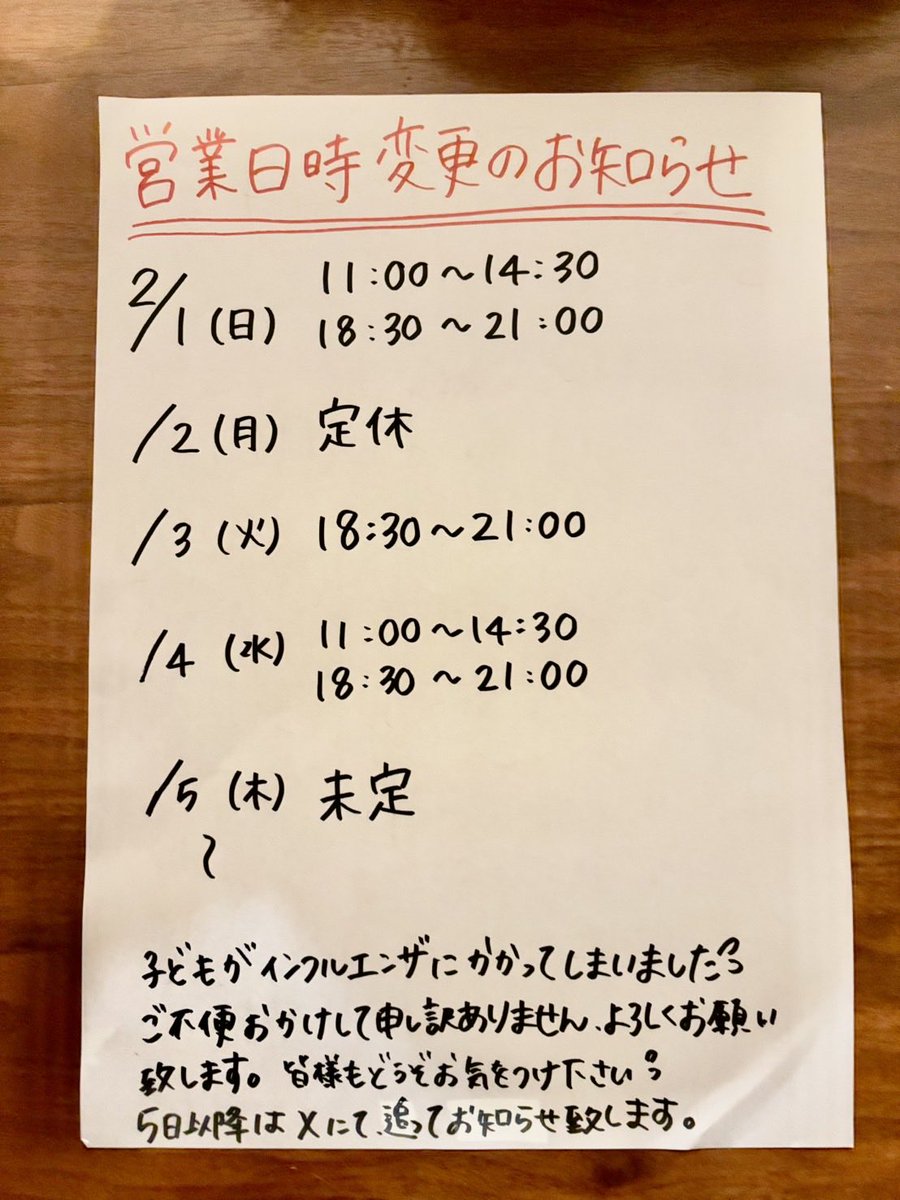 営業日時変更のお知らせ
2/1(日) 11:00〜14:30
18:30〜21:00
/2(月) 定休
/3(火) 18:30〜21:00
/4(水) 11:00〜14:30
18:30〜21:00
/5(木) 未定
〜
子どもがインフルエンザにかかってしまいました
ご不便おかけして申し訳ありません、よろしくお願い
致します。皆様もどうぞお気をつけ下さい
5日以降はXにて、追ってお知らせ致します。